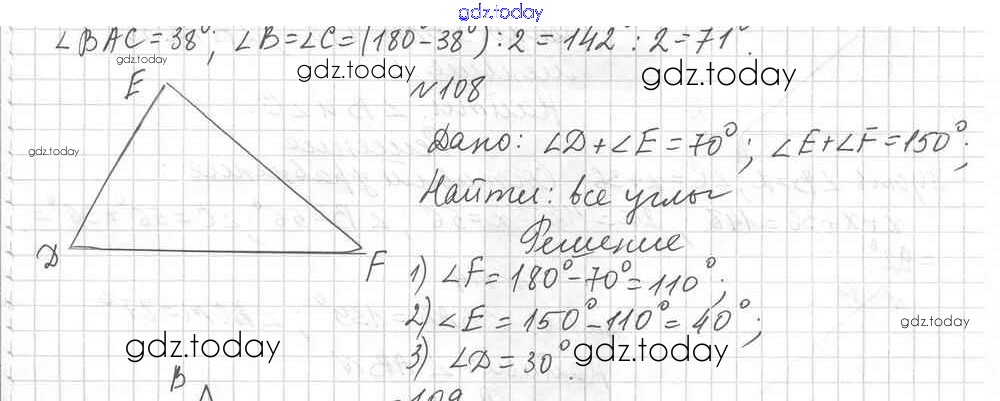 gdz.today
∠BAC=38°; ∠B=∠C=(180°-38°):2=142°:2=71°.
gdz.today
gdz.today
gdz.today
E
№108
gdz.today
Дано: ∠D+∠E=70°; ∠E+∠F=150°;
Найти: все углы
Решение
D
F
1) ∠F=180°-70°=110°;
2) ∠E=150°-110°=40°;
gdz.today
gdz.today
3) ∠D=30°.
gdz.today
B
109